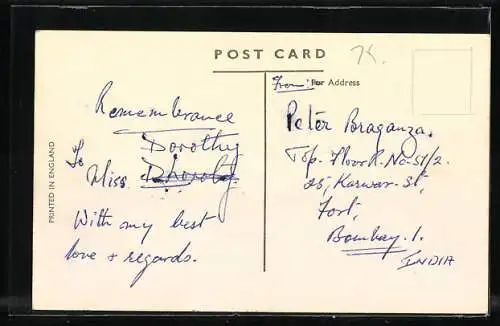 POST CARD
74.
From:- For Address
PRINTED IN ENGLAND
Remembrance
To Dorothy
Miss Dhoroty.
With my best
love & regards.
Peter Braganza.
Top. Floor R. No-51/2.
25, Karwar. St,
Fort,
Bombay. 1.
INDIA